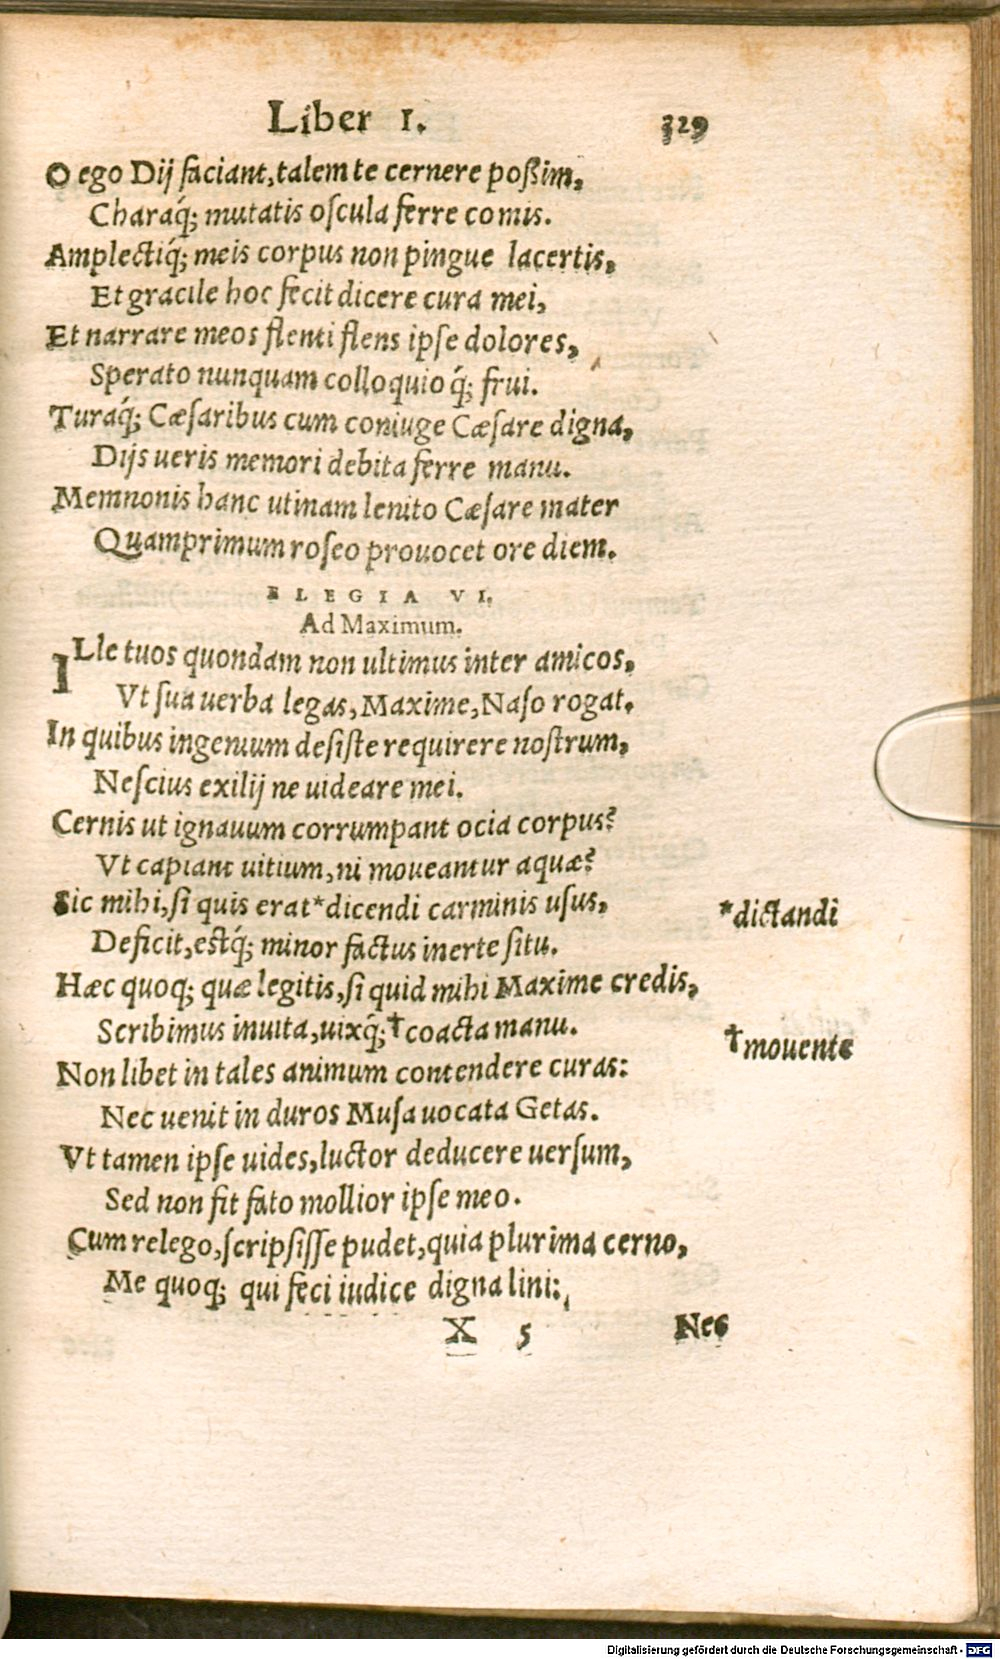 Liber I. 329
O ego Dij faciant, talem te cernere poßim,
Charaq́; mutatis oscula ferre comis.
Amplectiq́; meis corpus non pingue lacertis,
Et gracile hoc fecit dicere cura mei,
Et narrare meos flenti flens ipse dolores,
Sperato nunquam colloquio q́; frui.
Turaq́; Cæsaribus cum coniuge Cæsare digna,
Dijs ueris memori debita ferre manu.
Memnonis hanc utinam lenito Cæsare mater
Quamprimum roseo prouocet ore diem.
ELEGIA VI.
Ad Maximum.
ILle tuos quondam non ultimus inter amicos,
Vt sua uerba legas, Maxime, Naso rogat.
In quibus ingenium desiste requirere nostrum,
Nescius exilij ne uideare mei.
Cernis ut ignauum corrumpant ocia corpus?
Vt capiant uitium, ni moueantur aquæ?
Sic mihi, si quis erat *dicendi carminis usus,
*dictandi
Deficit, estq́; minor factus inerte situ.
Hæc quoq; quæ legitis, si quid mihi Maxime credis,
Scribimus inuita, uixq́; †coacta manu.
†mouente
Non libet in tales animum contendere curas:
Nec uenit in duros Musa uocata Getas.
Vt tamen ipse uides, luctor deducere uersum,
Sed non fit fato mollior ipse meo.
Cum relego, scripsisse pudet, quia plurima cerno,
Me quoq; qui feci iudice digna lini:
X 5 Nec
Digitalisierung gefördert durch die Deutsche Forschungsgemeinschaft - DFG